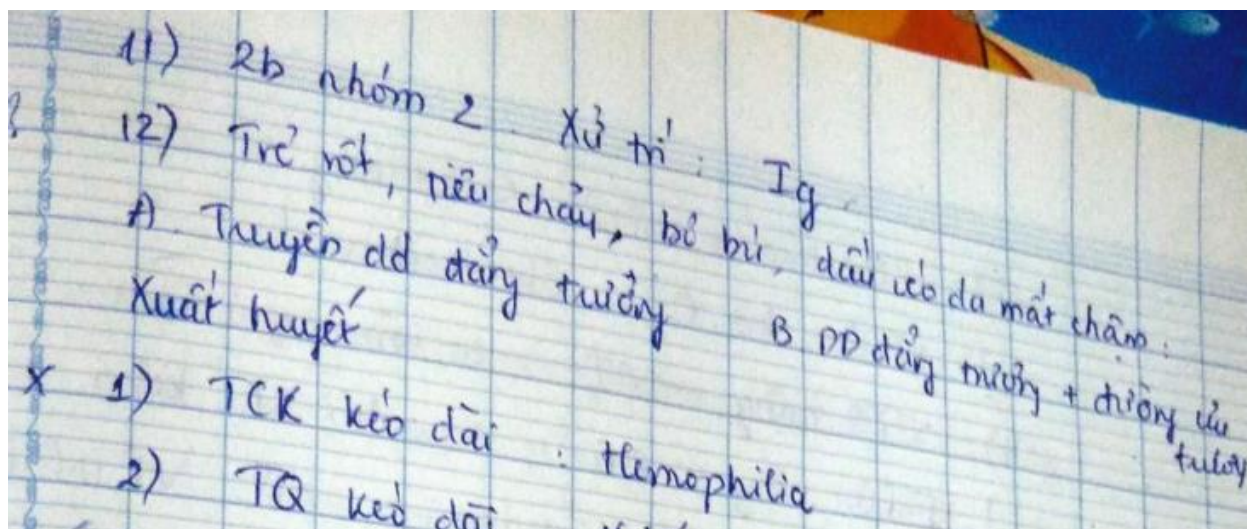 11) 2b nhóm 2. Xử trí: Ig.
12) Trẻ sốt, tiêu chảy, bỏ bú, dấu véo da mất chậm:
A. Truyền dd đẳng trương B DD đẳng trương + đường ưu trương
Xuất huyết
x 1) TCK kéo dài: Hemophilia
2) TQ kéo dài